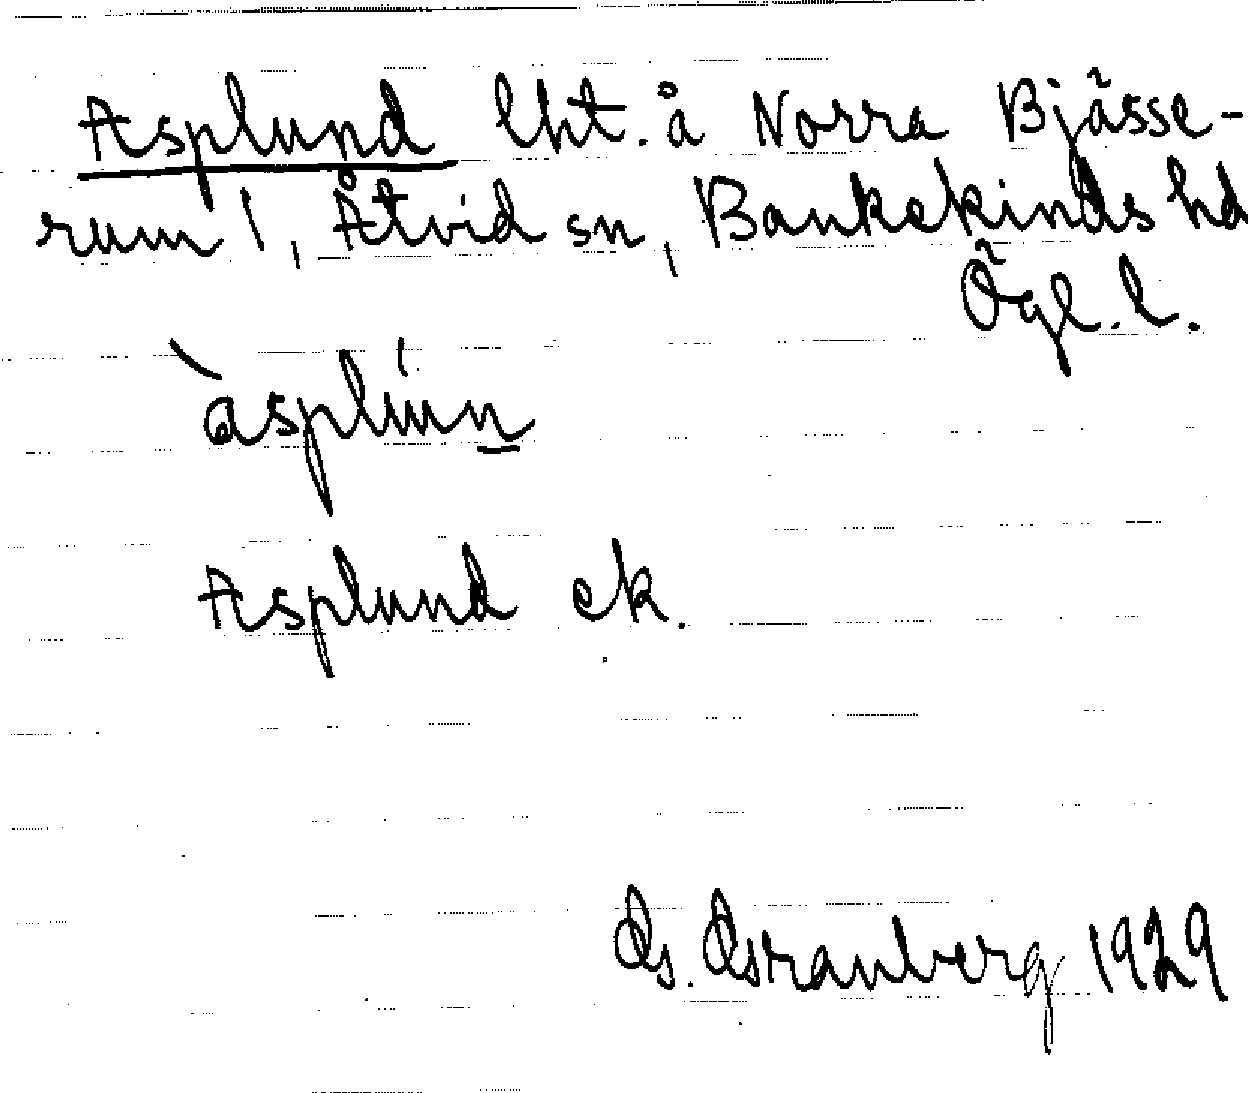 Asplund lht. å Norra Bjässe-
rum 1, Åtvid sn, Bankekinds hd
Ögl. l.
àsplún
Asplund ek.
G. Granberg 1929